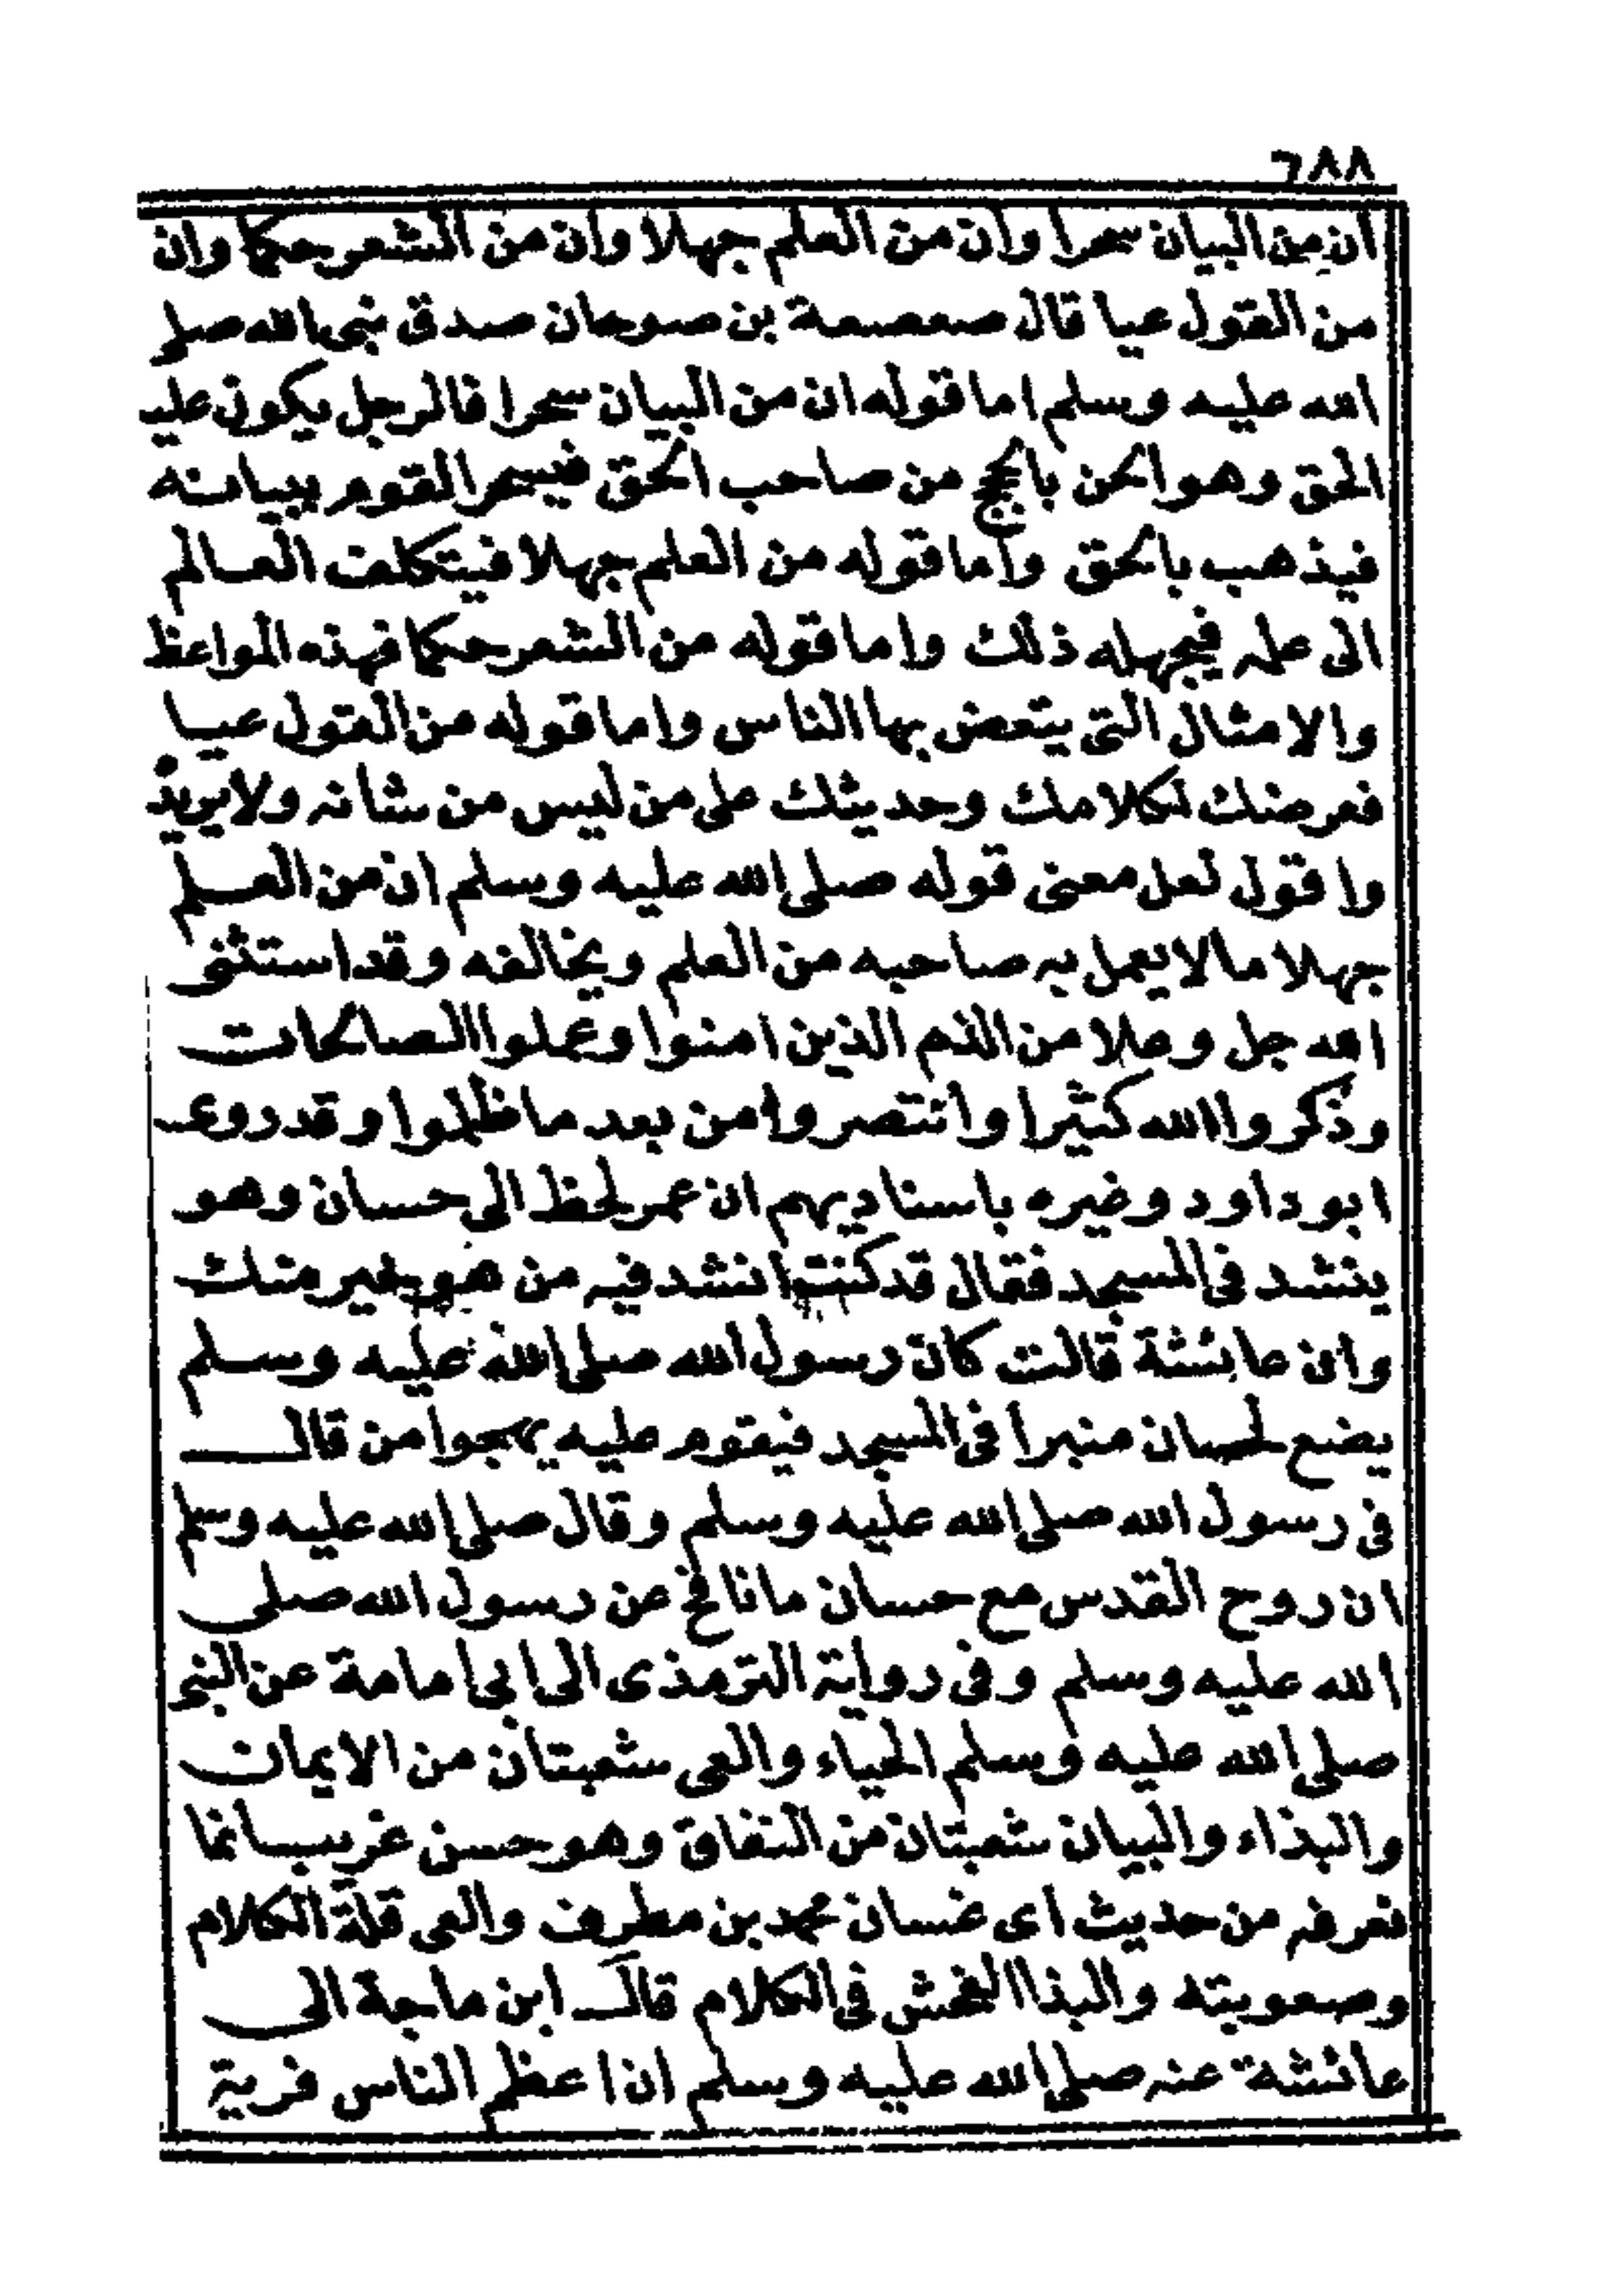 ٦٨٨
ان من البيان سحرا وان من العلم جهلا وان من الشعر حكما وان
من القول عيا قال صعصعة بن صوحان صدق نبى الله صلى
الله عليه وسلم اما قوله ان من البيان سحرا فالرجل يكون عليه
الحق وهو الحن بالحجج من صاحب الحق فيسحر القوم ببيانه
فيذهب بالحق واما قوله من العلم جهلا فيتكلف العالم
الى علمه فيجهله ذلك واما قوله من الشعر حكما فهذه المواعظ
والامثال التى يتعض بها الناس واما قوله من القول عيا
فعرضك لكلامك وحديثك على من ليس من شانه ولا يريد
واقول لعل معنى قوله صلى الله عليه وسلم ان من العلم
جهلا ما لا يعمل به صاحبه من العلم ويخالفه وقد استثنى
الله جل وعلا من الذم الذين امنوا وعملوا الصالحات
وذكروا الله كثيرا وانتصروا من بعد ما ظلموا وقد روى
ابو داود وغيره باسناديهم ان عمر لحظ الى حسان وهو
ينشد فى المسجد فقال قد كنت انشد فيه من هو خير منك
وان عائشة قالت كان رسول الله صلى الله عليه وسلم
يضع لحسان منبرا فى المسجد فيقوم عليه يهجوا من قال
فى رسول الله صلى الله عليه وسلم وقال صلى الله عليه وسلم
ان روح القدس مع حسان ما نافح عن رسول الله صلى
الله عليه وسلم وفى رواية الترمذى الى ابى امامة عن النبى
صلى الله عليه وسلم الحياء والعى شعبتان من الايمان
والبذاء والبيان شعبتان من النفاق وهو حسن غريب انما
نعرفه من حديث اى غسان محمد بن مطرف والعى قلة الكلام
وصعوبته والبذا الفحش فى الكلام قال ابن ماجة الى
عائشة عنه صلى الله عليه وسلم ان اعظم الناس فرية